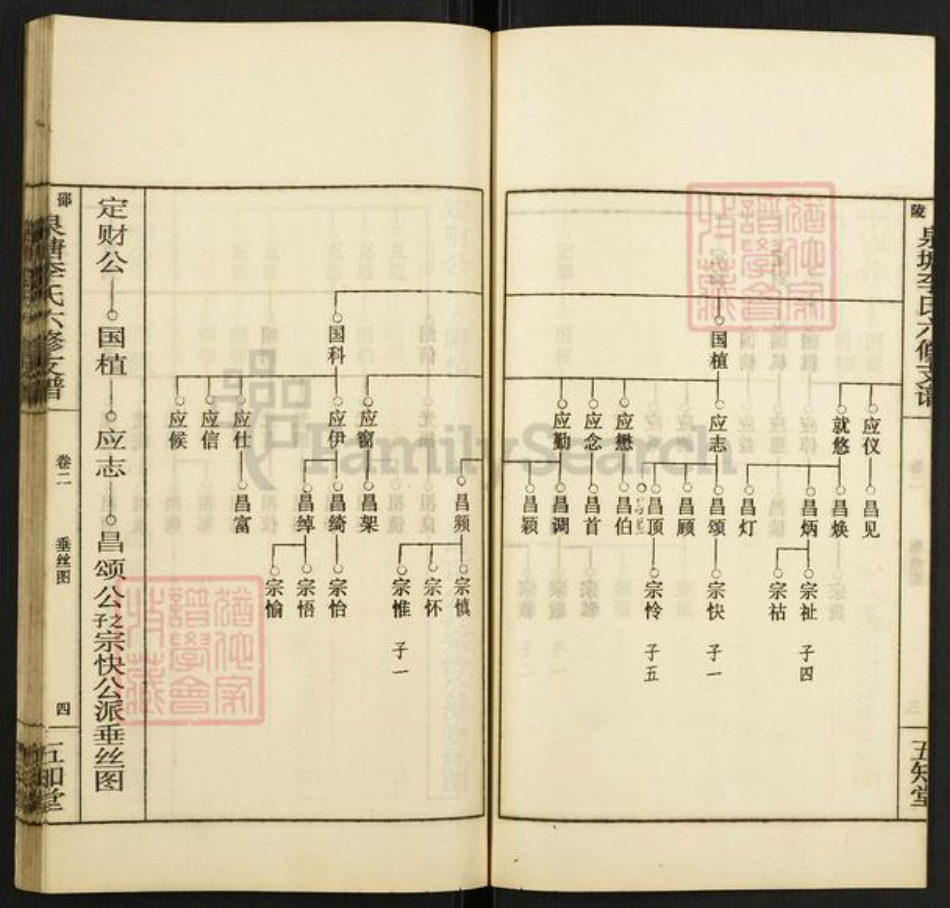 陵
泉塘李氏六修支谱
五知堂
国植
应仪
就悠
应志
应懋
应念
应勤
昌见
昌焕
昌炳
昌灯
昌颂
昌顾
昌顶
昌伯
昌首
昌调
昌颖
宗祉
宗祜
宗快
宗怜
子四
子一
子五
国科
应窗
应伊
应仕
应信
应候
昌频
昌架
昌绮
昌绰
昌富
宗慎
宗怀
宗惟
宗怡
宗悟
宗愉
子一
定财公—国植—应志—昌颂公子之宗快公派垂丝图
邵
泉塘李氏六修支谱
卷二
垂丝图
四
五知堂
FamilySearch